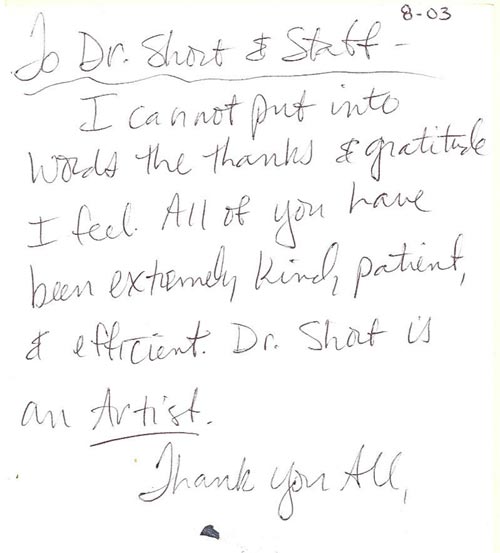 8-03
To Dr. Short & Staff -
I cannot put into
words the thanks & gratitude
I feel. All of you have
been extremely kind, patient,
& efficient. Dr. Short is
an Artist.
Thank you All,